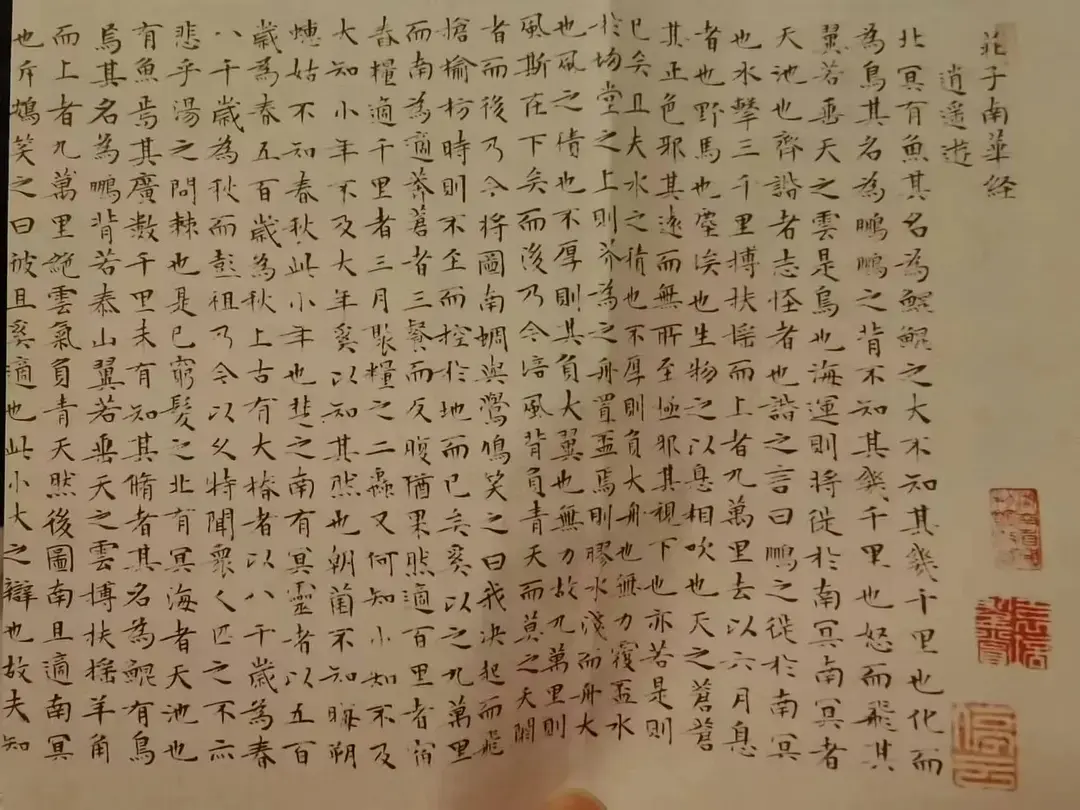 莊子南華経
逍遥遊
北冥有魚其名為鯤鯤之大不知其幾千里也化而
為鳥其名為鵬鵬之背不知其幾千里也怒而飛其
翼若垂天之雲是鳥也海運則將徙於南冥南冥者
天池也齊諧者志怪者也諧之言曰鵬之徙於南冥
也水擊三千里摶扶搖而上者九萬里去以六月息
者也野馬也塵埃也生物之以息相吹也天之蒼蒼
其正色邪其遠而無所至極邪其視下也亦若是則
已矣且夫水之積也不厚則負大舟也無力覆盃水
於坳堂之上則芥為之舟置盃焉則膠水淺而舟大
也風之積也不厚則其負大翼也無力故九萬里則
風斯在下矣而後乃今培風背負青天而莫之夭閼
者而後乃今將圖南蜩與鷽鳩笑之曰我決起而飛
搶榆枋時則不至而控於地而已矣奚以之九萬里
而南為適莽蒼者三餐而反腹猶果然適百里者宿
舂糧適千里者三月聚糧之二蟲又何知小知不及
大知小年不及大年奚以知其然也朝菌不知晦朔
蟪蛄不知春秋此小年也楚之南有冥靈者以五百
歲為春五百歲為秋上古有大椿者以八千歲為春
八千歲為秋而彭祖乃今以久特聞衆人匹之不亦
悲乎湯之問棘也是已窮髮之北有冥海者天池也
有魚焉其廣數千里未有知其脩者其名為鯤有鳥
焉其名為鵬背若泰山翼若垂天之雲摶扶搖羊角
而上者九萬里絕雲氣負青天然後圖南且適南冥
也斥鴳笑之曰彼且奚適也此小大之辯也故夫知